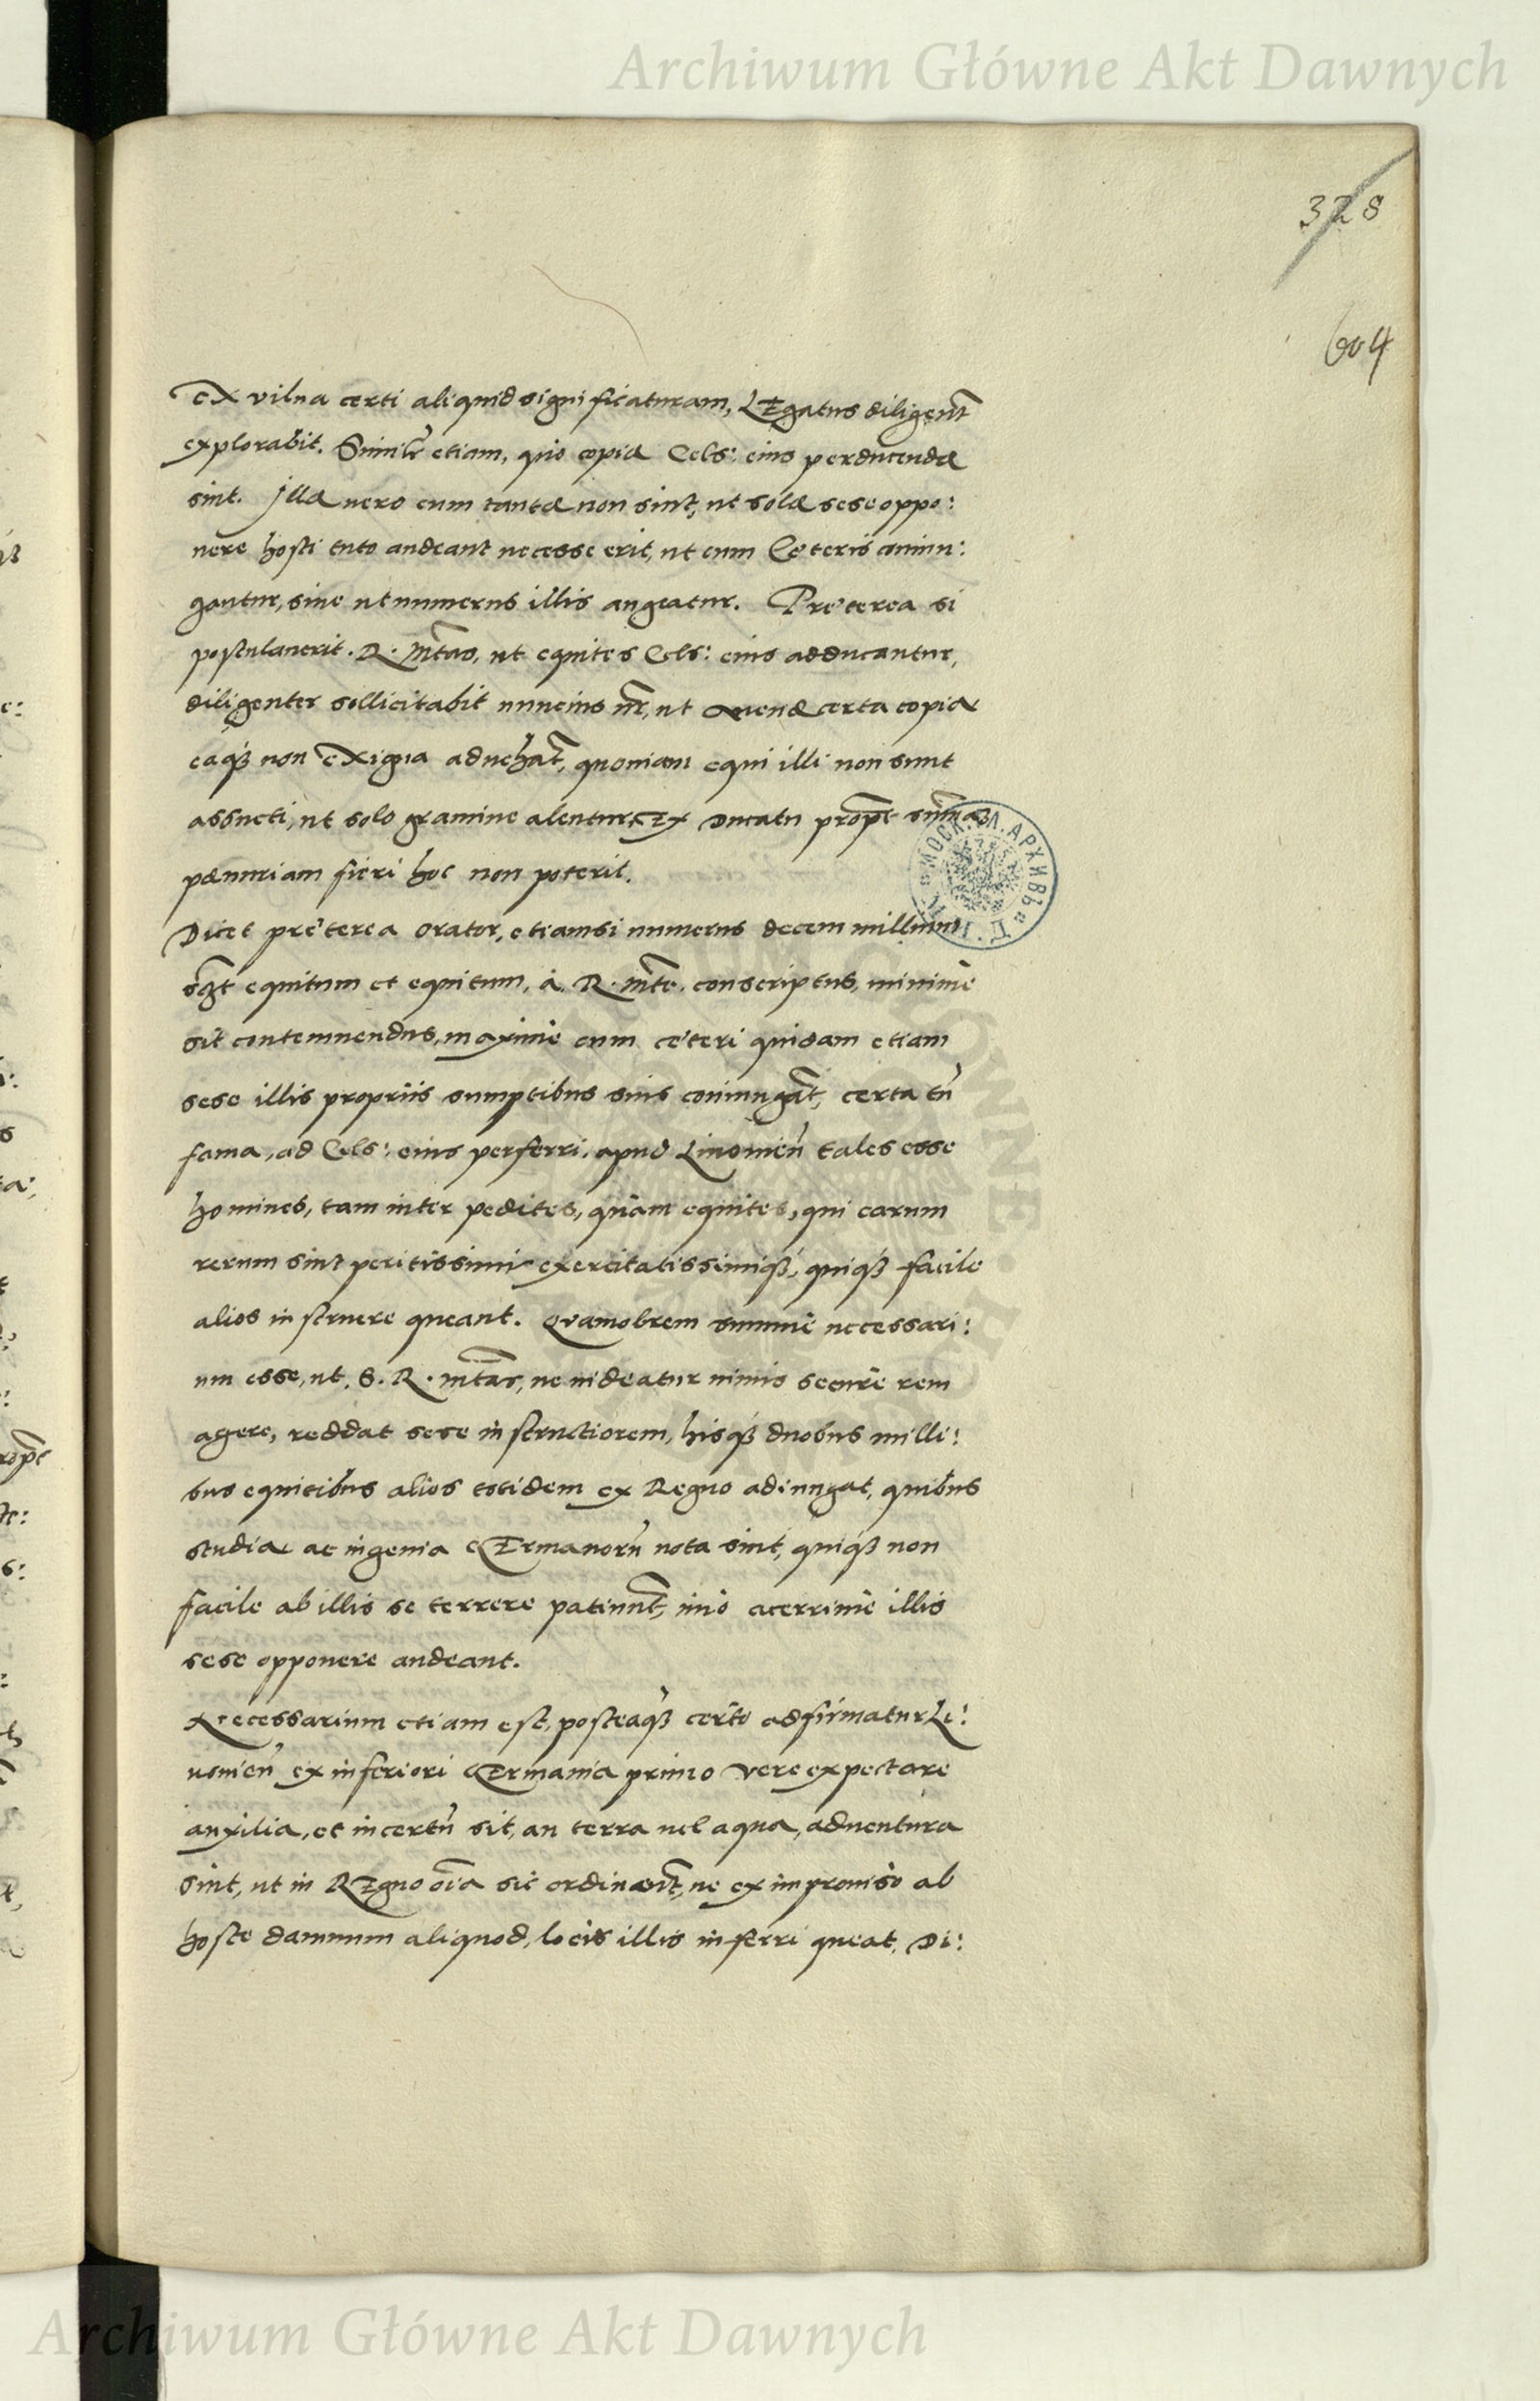 Archiwum Główne Akt Dawnych
328
604
Ex vilna certi aliquid significaturam, Legatus diligent̃
explorabit. Similr̃ etiam, quo copiæ Cels: eius perducendæ
sint. Illæ uero cum tantæ non sint, ut solæ sese oppo:
nere hosti tuto audeant necesse erit, ut cum Cęteris coniun:
gantur, siue ut numerus illis augeatur. Pręterea si
postulauerit. R. Mt̃as, ut equites Cels: eius adducantur,
diligenter sollicitabit nuncius nr̃, ut auenæ certa copia
eaq́ꝫ non Exigua aduehãt, quoniam equi illi non sunt
assueti, ut solo gramine alentur. Ex Ducatu prop̃t sum̃ã
pænuriam fieri hoc non poterit.
Dicet pręterea orator, etiamsi numerus decem millium
equitum et equitum, à R. Mt̃e. conscriptus, minimè
sit contemnendus, maximè cum cęteri quidam etiam
sese illis proprijs sumptibus suis coniungãt, certa tñ
fama, ad Cels: eius perferri, apud Liuonieñ tales esse
homines, tam inter pedites, quàm equites, qui earum
rerum sint peritissimi exercitatissimiq́ꝫ, quiq́ꝫ facile
alios instruere queant. Quamobrem summè necessari:
um esse, ut. S. R. Mt̃as, ne uideatur nimis securè rem
agere, reddat sese instructiorem, hisq́ꝫ duobus milli:
bus equitibus alios totidem ex Regno adiungat, quibus
studia ac ingenia Germanorũ nota sint, quiq́ꝫ non
facile ab illis se terrere patiunt̃, imò acerrimè illis
sese opponere audeant.
Necessarium etiam est, posteaq́ꝫ certò adfirmatur Li:
uonieñ ex inferiori Germania primo vere expectare
auxilia, et incertũ sit, an terra uel aqua, aduentura
sint, ut in Regno oĩa sic ordinent̃, ne ex improuiso ab
hoste damnum aliquod, locis illis inferri queat. Di:
МОСК. ГЛ. АРХИВЪ
Archiwum Główne Akt Dawnych